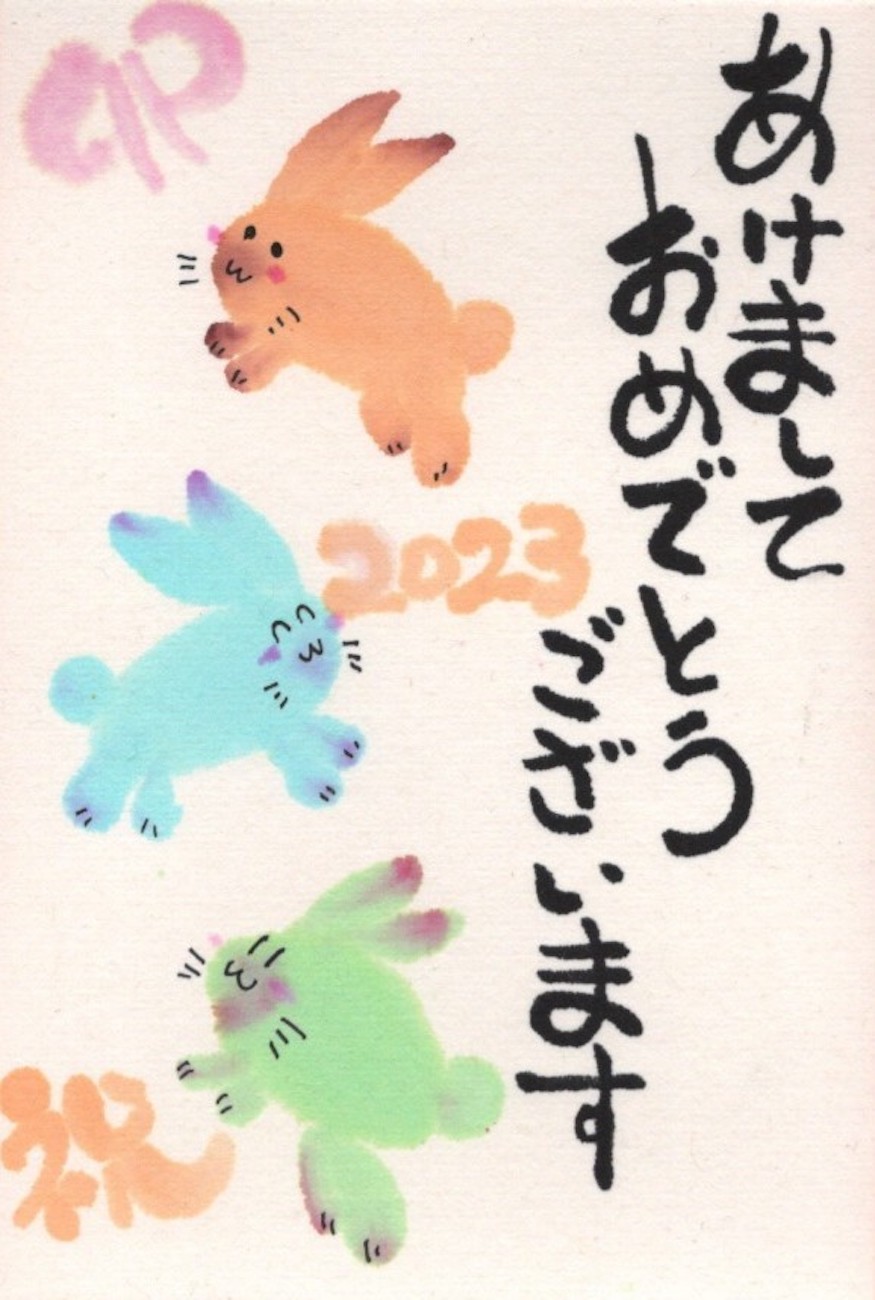 あけまして
おめでとう
ございます
2023
卯
祝